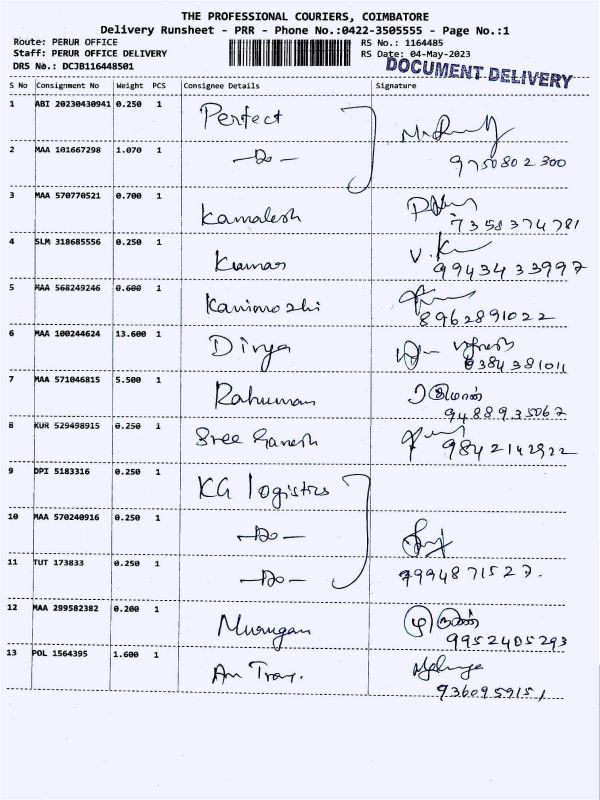 THE PROFESSIONAL COURIERS, COIMBATORE
Delivery Runsheet - PRR - Phone No.:0422-3505555 - Page No.:1
Route: PERUR OFFICE RS No.: 1164485
Staff: PERUR OFFICE DELIVERY RS Date: 04-May-2023
DRS No.: DCJB116448501 DOCUMENT DELIVERY
S No Consignment No Weight PCS Consignee Details Signature
1 ABI 20230430941 0.250 1 Perfect
2 MAA 101667298 1.070 1 -Do- 9750802300
3 MAA 570770521 0.700 1 Kamalesh 7358374781
4 SLM 318685556 0.250 1 Kumar V.K 9943433997
5 MAA 568249246 0.600 1 Kanimozhi 8962891022
6 MAA 100244624 13.600 1 Divya 6384381011
7 MAA 571046815 5.500 1 Rahuman ரஹ்மான் 9488935067
8 KUR 529498915 0.250 1 Sree Ganesh 9842142922
9 DPI 5183316 0.250 1 KG logistics
10 MAA 570240916 0.250 1 -Do-
11 TUT 173833 0.250 1 -Do- 7994871527.
12 MAA 299582382 0.200 1 Murugan 9952405293
13 POL 1564395 1.600 1 Am Tray. 9360959151